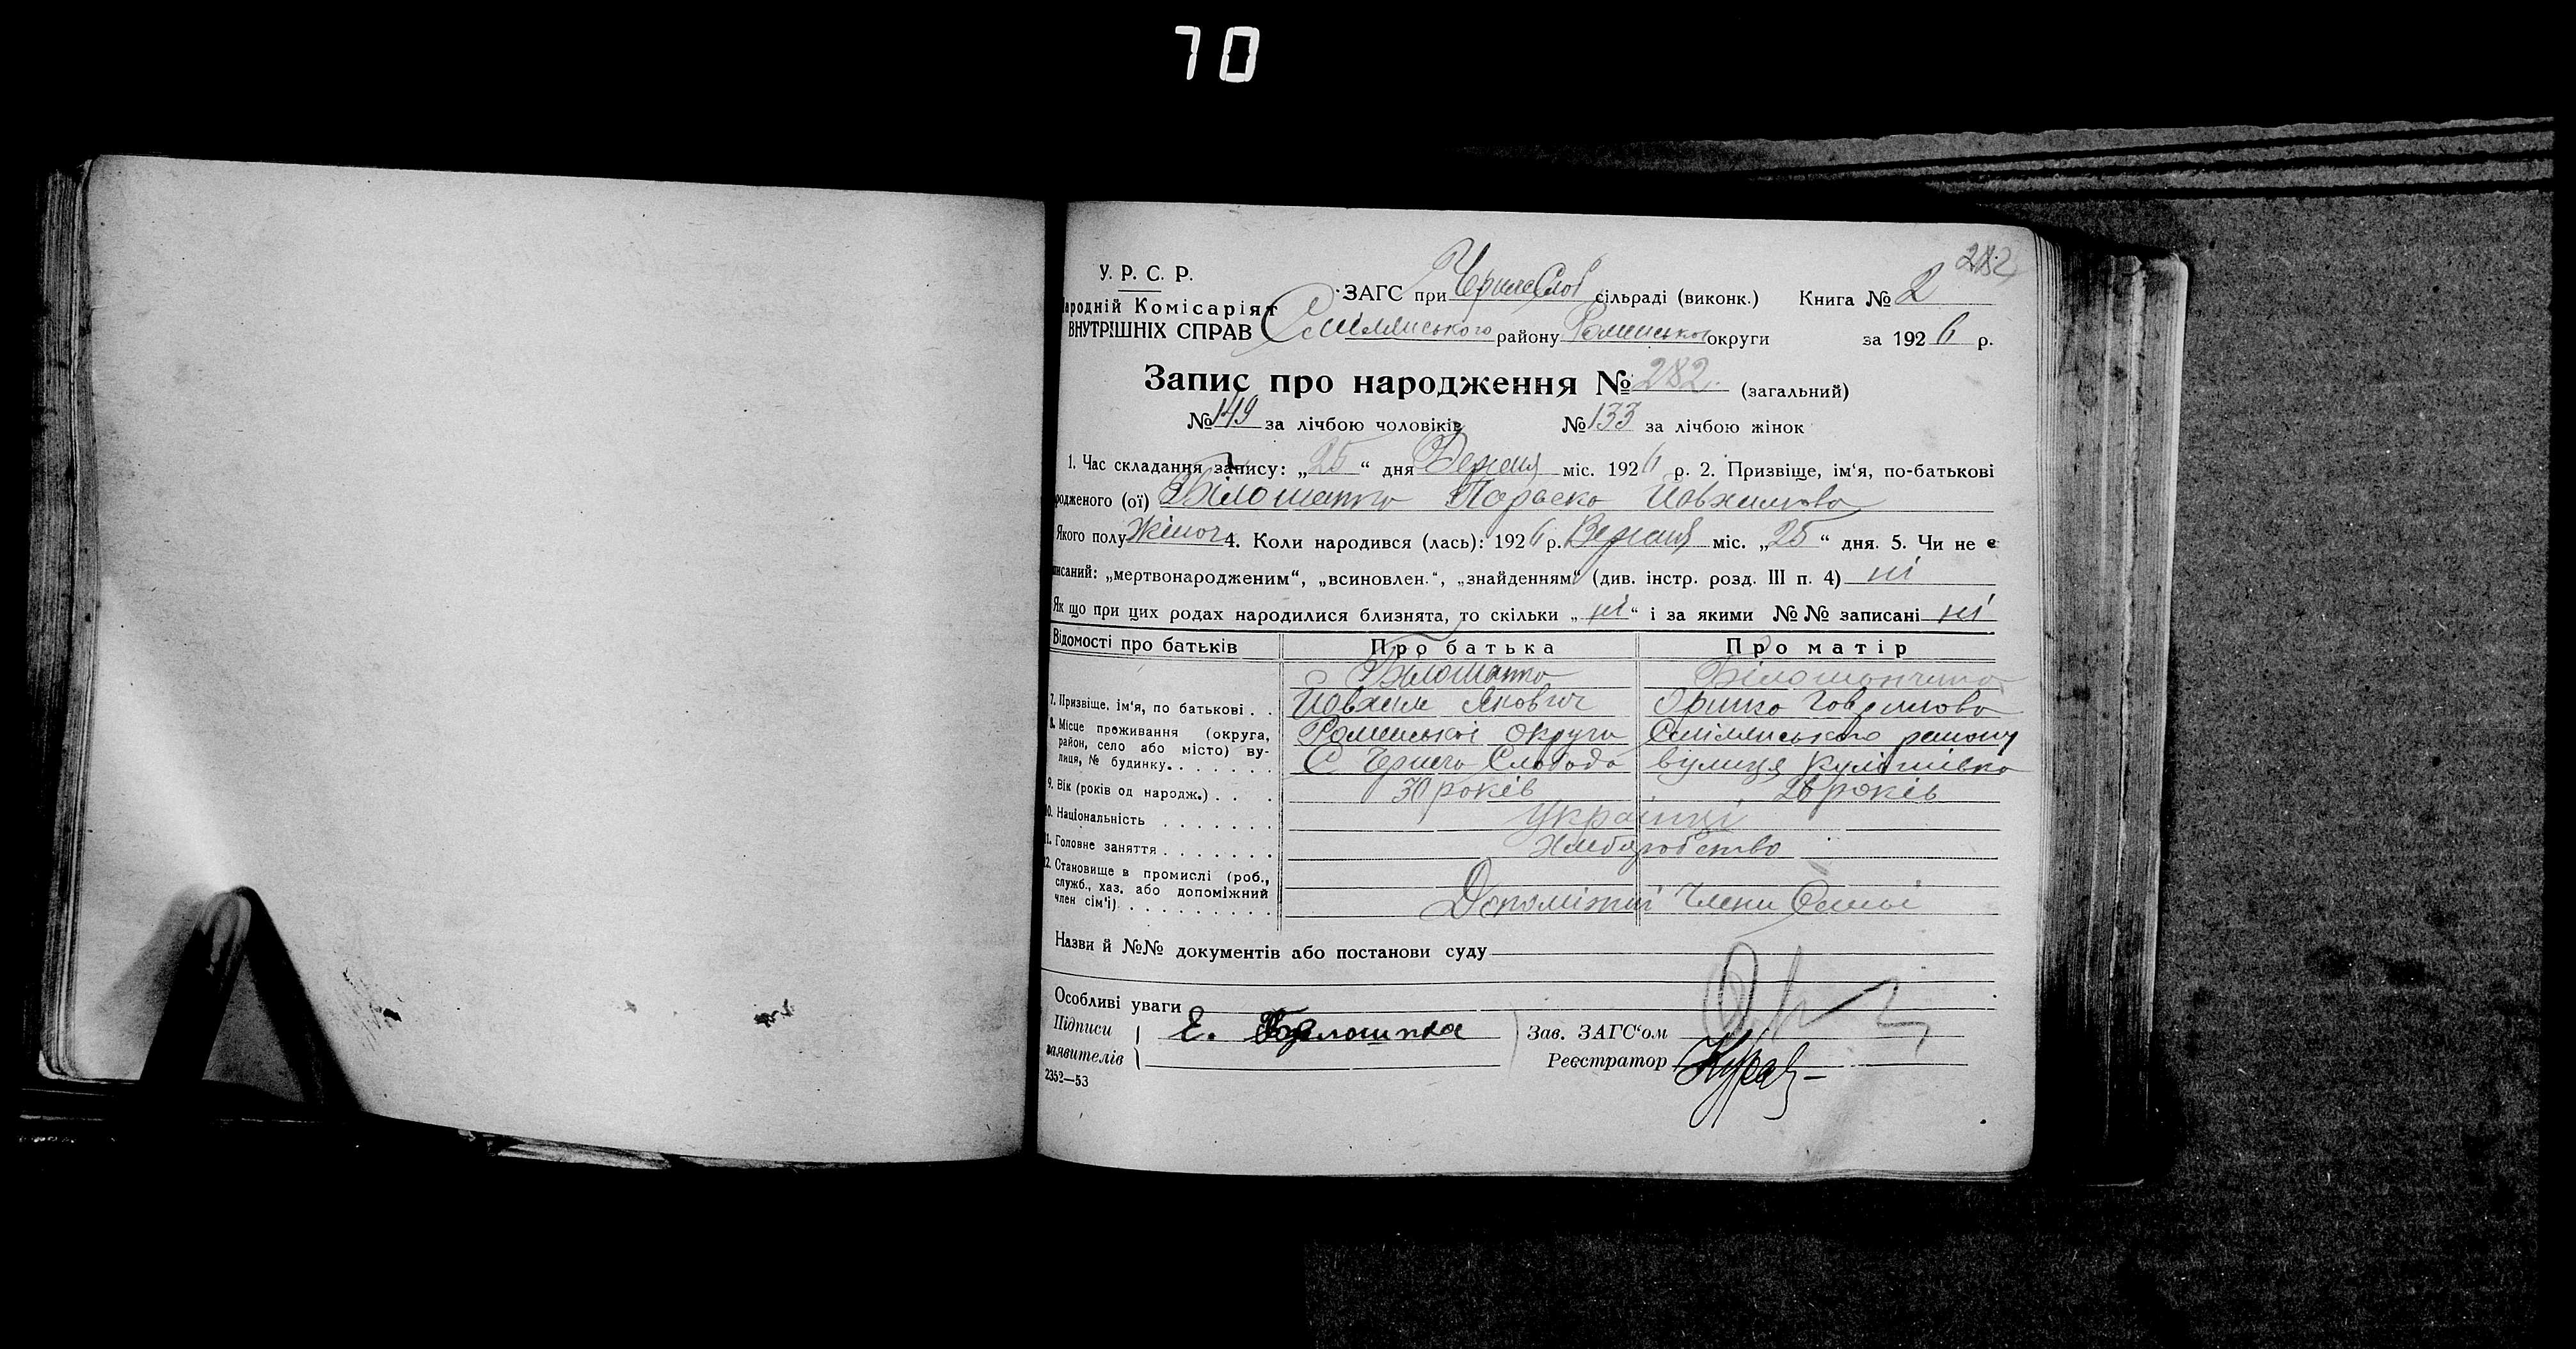 70
282
У. Р. С. Р.
ЗАГС при Черне Слоб сільраді (виконк.) Книга № 2
Народній Комісаріят
ВНУТРІШНІХ СПРАВ Смілянського району Роменської округи за 1926 р.
Запис про народження № 282 (загальний)
№ 149 за лічбою чоловіків № 133 за лічбою жінок
1. Час складання запису: „25“ дня Вересня міс. 1926 р. 2. Призвіще, ім‘я, по-батькові
родженого (ої) Білошапка Параска Йовхимова
Якого полу Жіноч 4. Коли народився (лась): 1926 р. Вересня міс. „25“ дня. 5. Чи не є
писаний: „мертвонародженим“, „всиновлен.“, „знайденням“ (див. інстр. розд. III п. 4) ні
Як що при цих родах народилися близнята, то скільки „ні“ і за якими №№ записані ні
Відомості про батьків Про батька Про матір
Білошапка
7. Призвіще, ім‘я, по батькові . . Йовхим Якович Оришка Говрилова
8. Місце проживання (округа, район, село або місто) вулиця, № будинку. Роменської округи Смілянського району
С Чернеча Слобода вулиця Кулішівка
9. Вік (років од народж.) . . . 30 років 26 років
10. Національність . . . . . . . Українці
11. Головне заняття . . . . . . . Хлеборобство
12. Становище в промислі (роб.,
служб., хаз. або допоміжний
член сім‘ї) . . . . . . . . . . Допоміжні Члени Семьі
Назви й №№ документів або постанови суду
Особливі уваги
Підписи Е. Белошапка Зав. ЗАГС‘ом
заявителів Реєстратор
2352—53